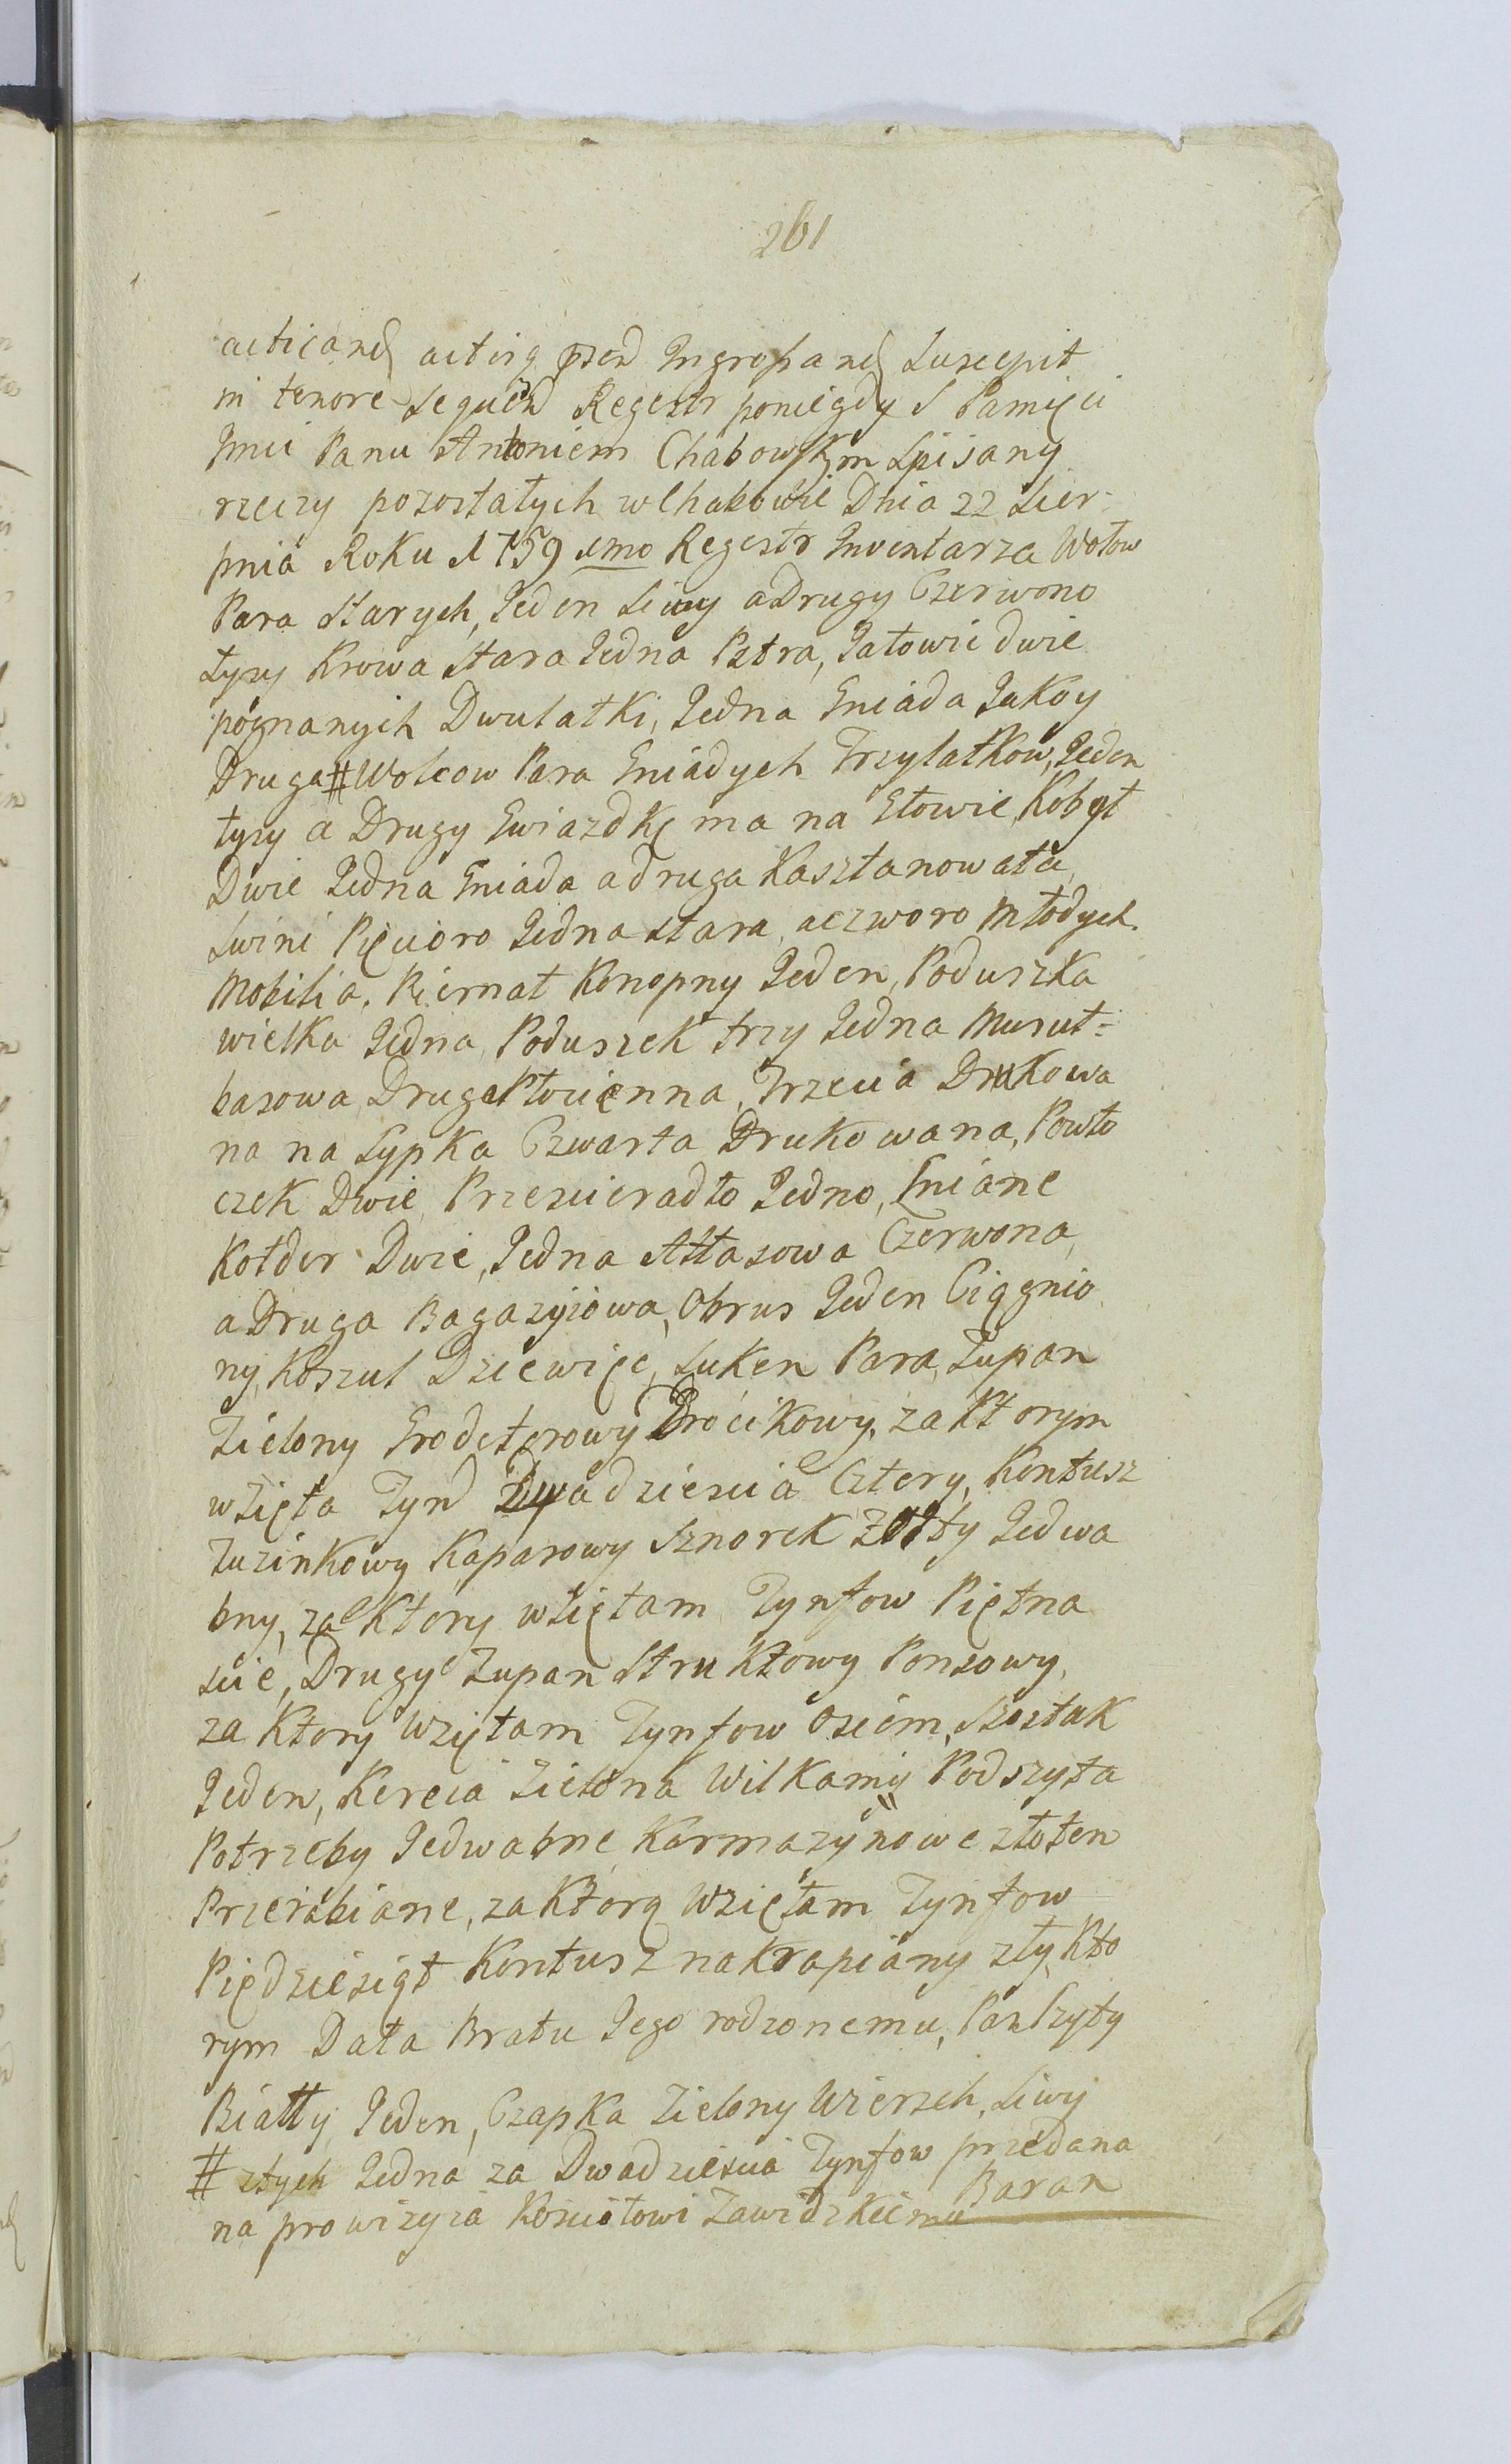 261
acticand actisq prad Ingrossand Suscepit
in tenore Sequend Regestr poniegdy S Pamięci
Jmci Panu Antoniem Chabowskym Spisany
rzeczy pozostałych w Chabowie Dnia 22 Sier-
pnia Roku 1759 1mo Regestr Inwentarza Wołow
Para Starych, Jeden Siwy a Drugy Czerwono
Łysy Krowa Stara Jedna Pstra, Jałowic dwie
pognanych Dwulatki, Jedna Gniada Jakoy
Druga # Wolcow Para Gniadych Trzylatkow, Jeden
łysy a Drugy Gwiazdkę ma na Głowie, Kobył
Dwie Jedna Gniada a druga Kasztanowata,
Swini Pięcioro Jedna stara, a czworo młodych.
Mobilia. Piernat Konopny Jeden, Poduszka
wielka Jedna, Poduszek trzy Jedna Musut=
basowa Druga Płocienna, Trzecia Drukowa
na na Sypka Czwarta Drukowana, Powło
czek Dwie, Przescieradło Jedno, Lniane
Kołder Dwie, Jedna Atłasowa Czerwona,
a Druga Bagazyiowa, Obrus Jeden Ciągnio
ny, Koszul Dziewięc, Suken Para, Zupan
Zielony Grodeterowy Drocikowy, za ktorym
wzięła Tynf Dwadziescia Cztery, Kontusz
Zuzinkowy Kaparowy Sznorek Zołty Jedwa
bny, za Ktory wzięłam Tynfow Piętna
scie, Drugy Zupan Struktowy Ponsowy,
za Ktory wzięłam Tynfow Osiem, Szostak
Jeden, Kereia Zielona Wilkamy Podszyta
Potrzeby Jedwabne Karmazynowe złotem
Przerabiane, za Ktorą wzięłam Tynfow
Piędziesiąt Kontusz nakrapiany zły, Kto
rym Data Bratu Jego rodzonemu, Pas Szyty
Białły Jeden, Czapka Zielony Wierzch, Siwy
Baran
# złych Jedna za Dwadziescia Tynfow przedana
na prowizyia Kosciołowi Zawidzkiemu